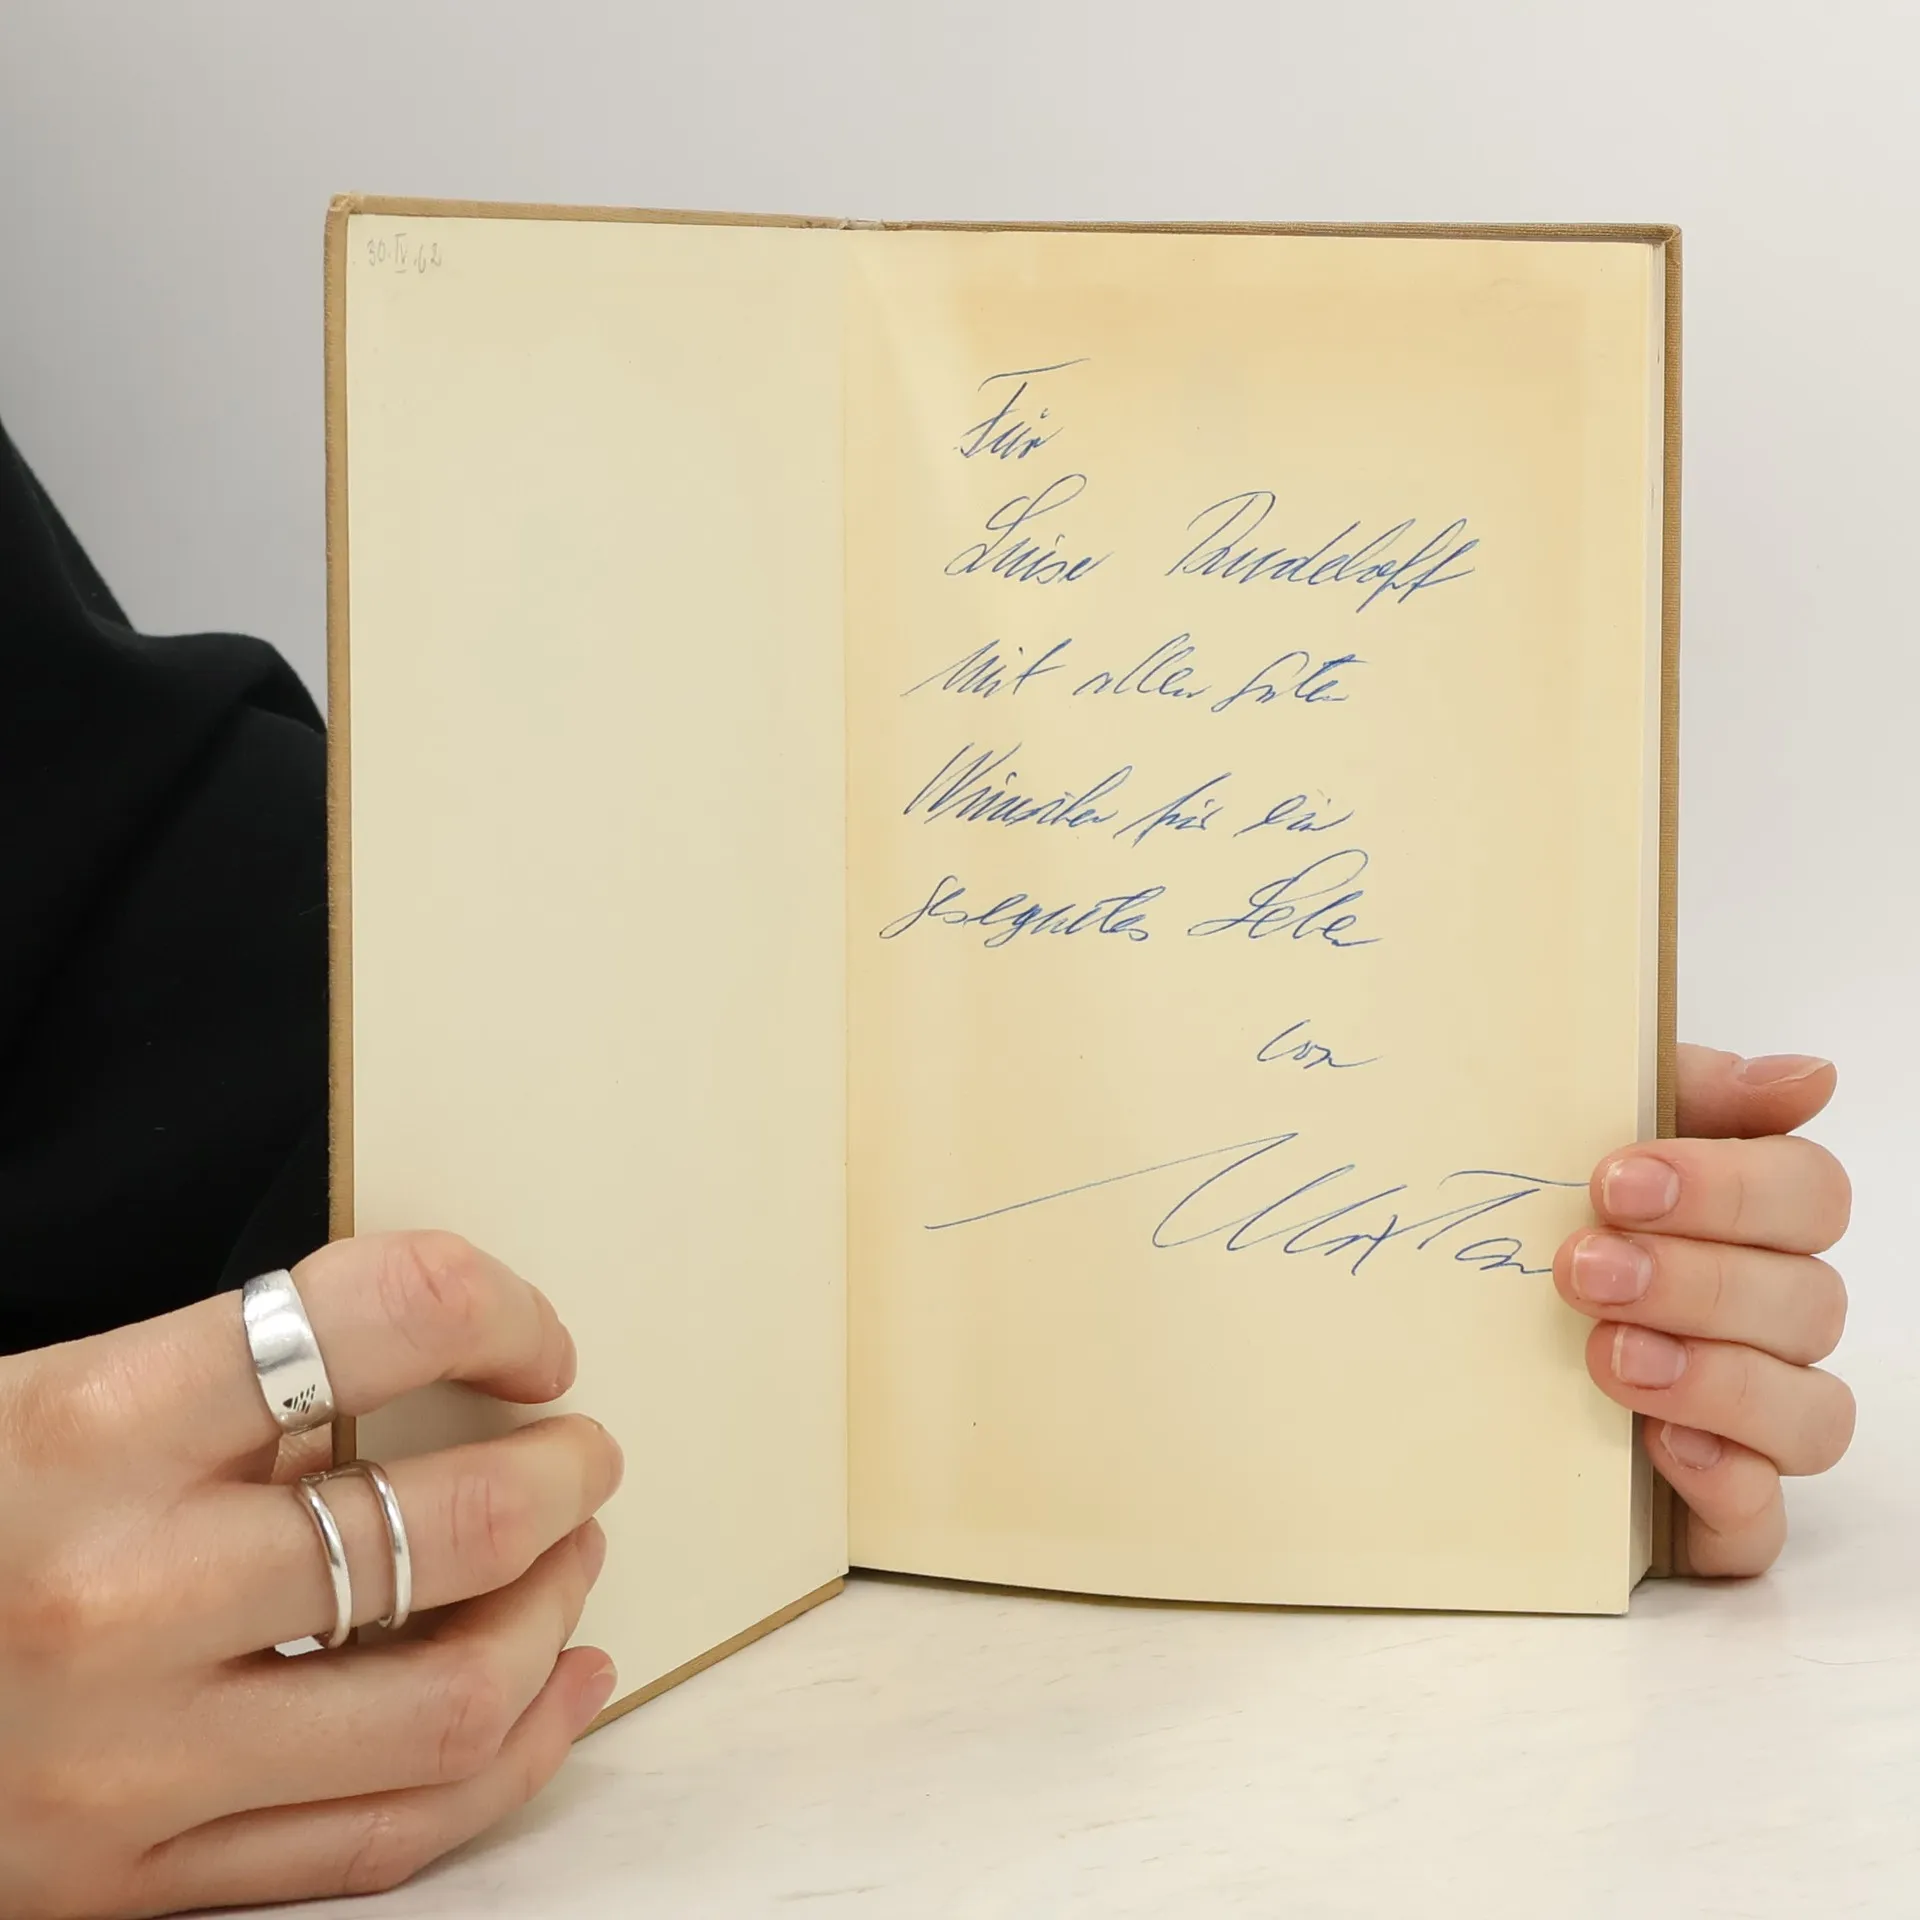 30.IV.62
Für
Luise Rudeloff
mit allen guten
Wünschen für ein
gesegnetes Leben
von